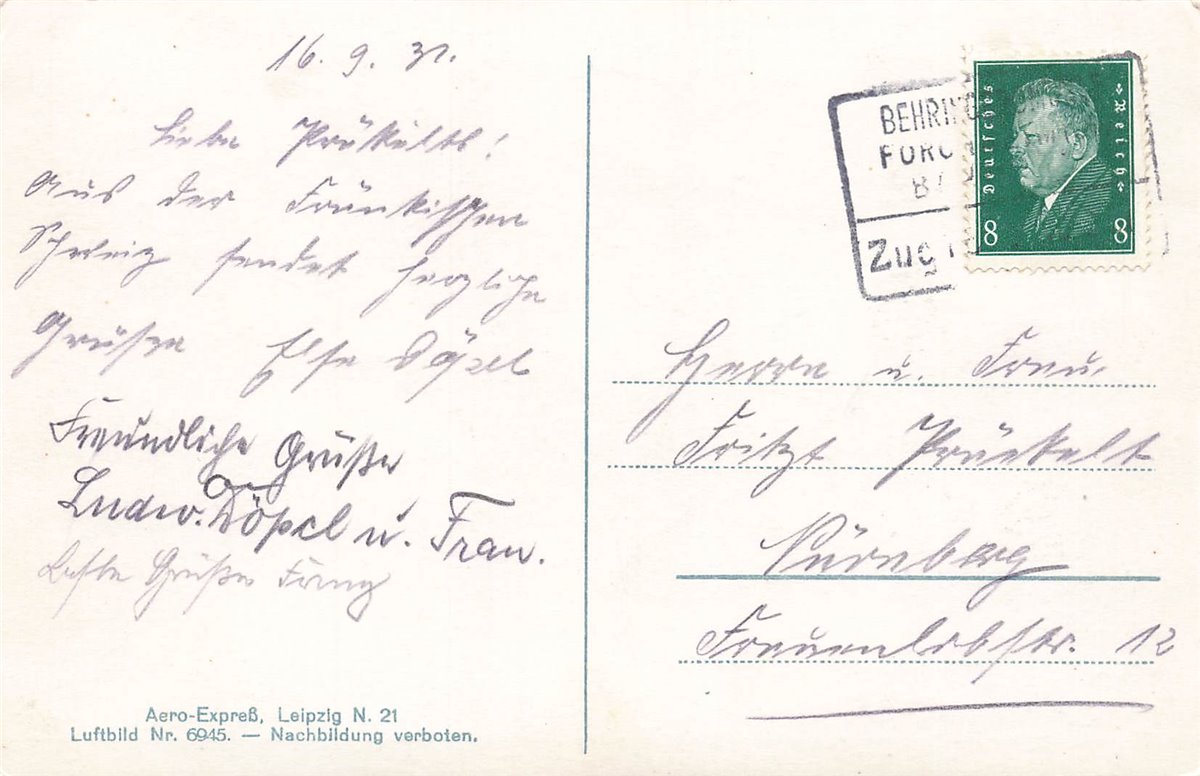 16. 9. 31.
Liebe Prükelts!
Aus der Fränkischen
Schweiz sendet herzliche
Grüße Else Döpel
Freundliche Grüße
Ludw. Döpel u. Frau.
Beste Grüße Franz
Aero-Expreß, Leipzig N. 21
Luftbild Nr. 6945. — Nachbildung verboten.
BEHRING
FORC
Zug
Deutsches Reich
8 8
Herrn u. Frau
Fritz Prückelt
Nürnberg
Frauenlobstr. 12